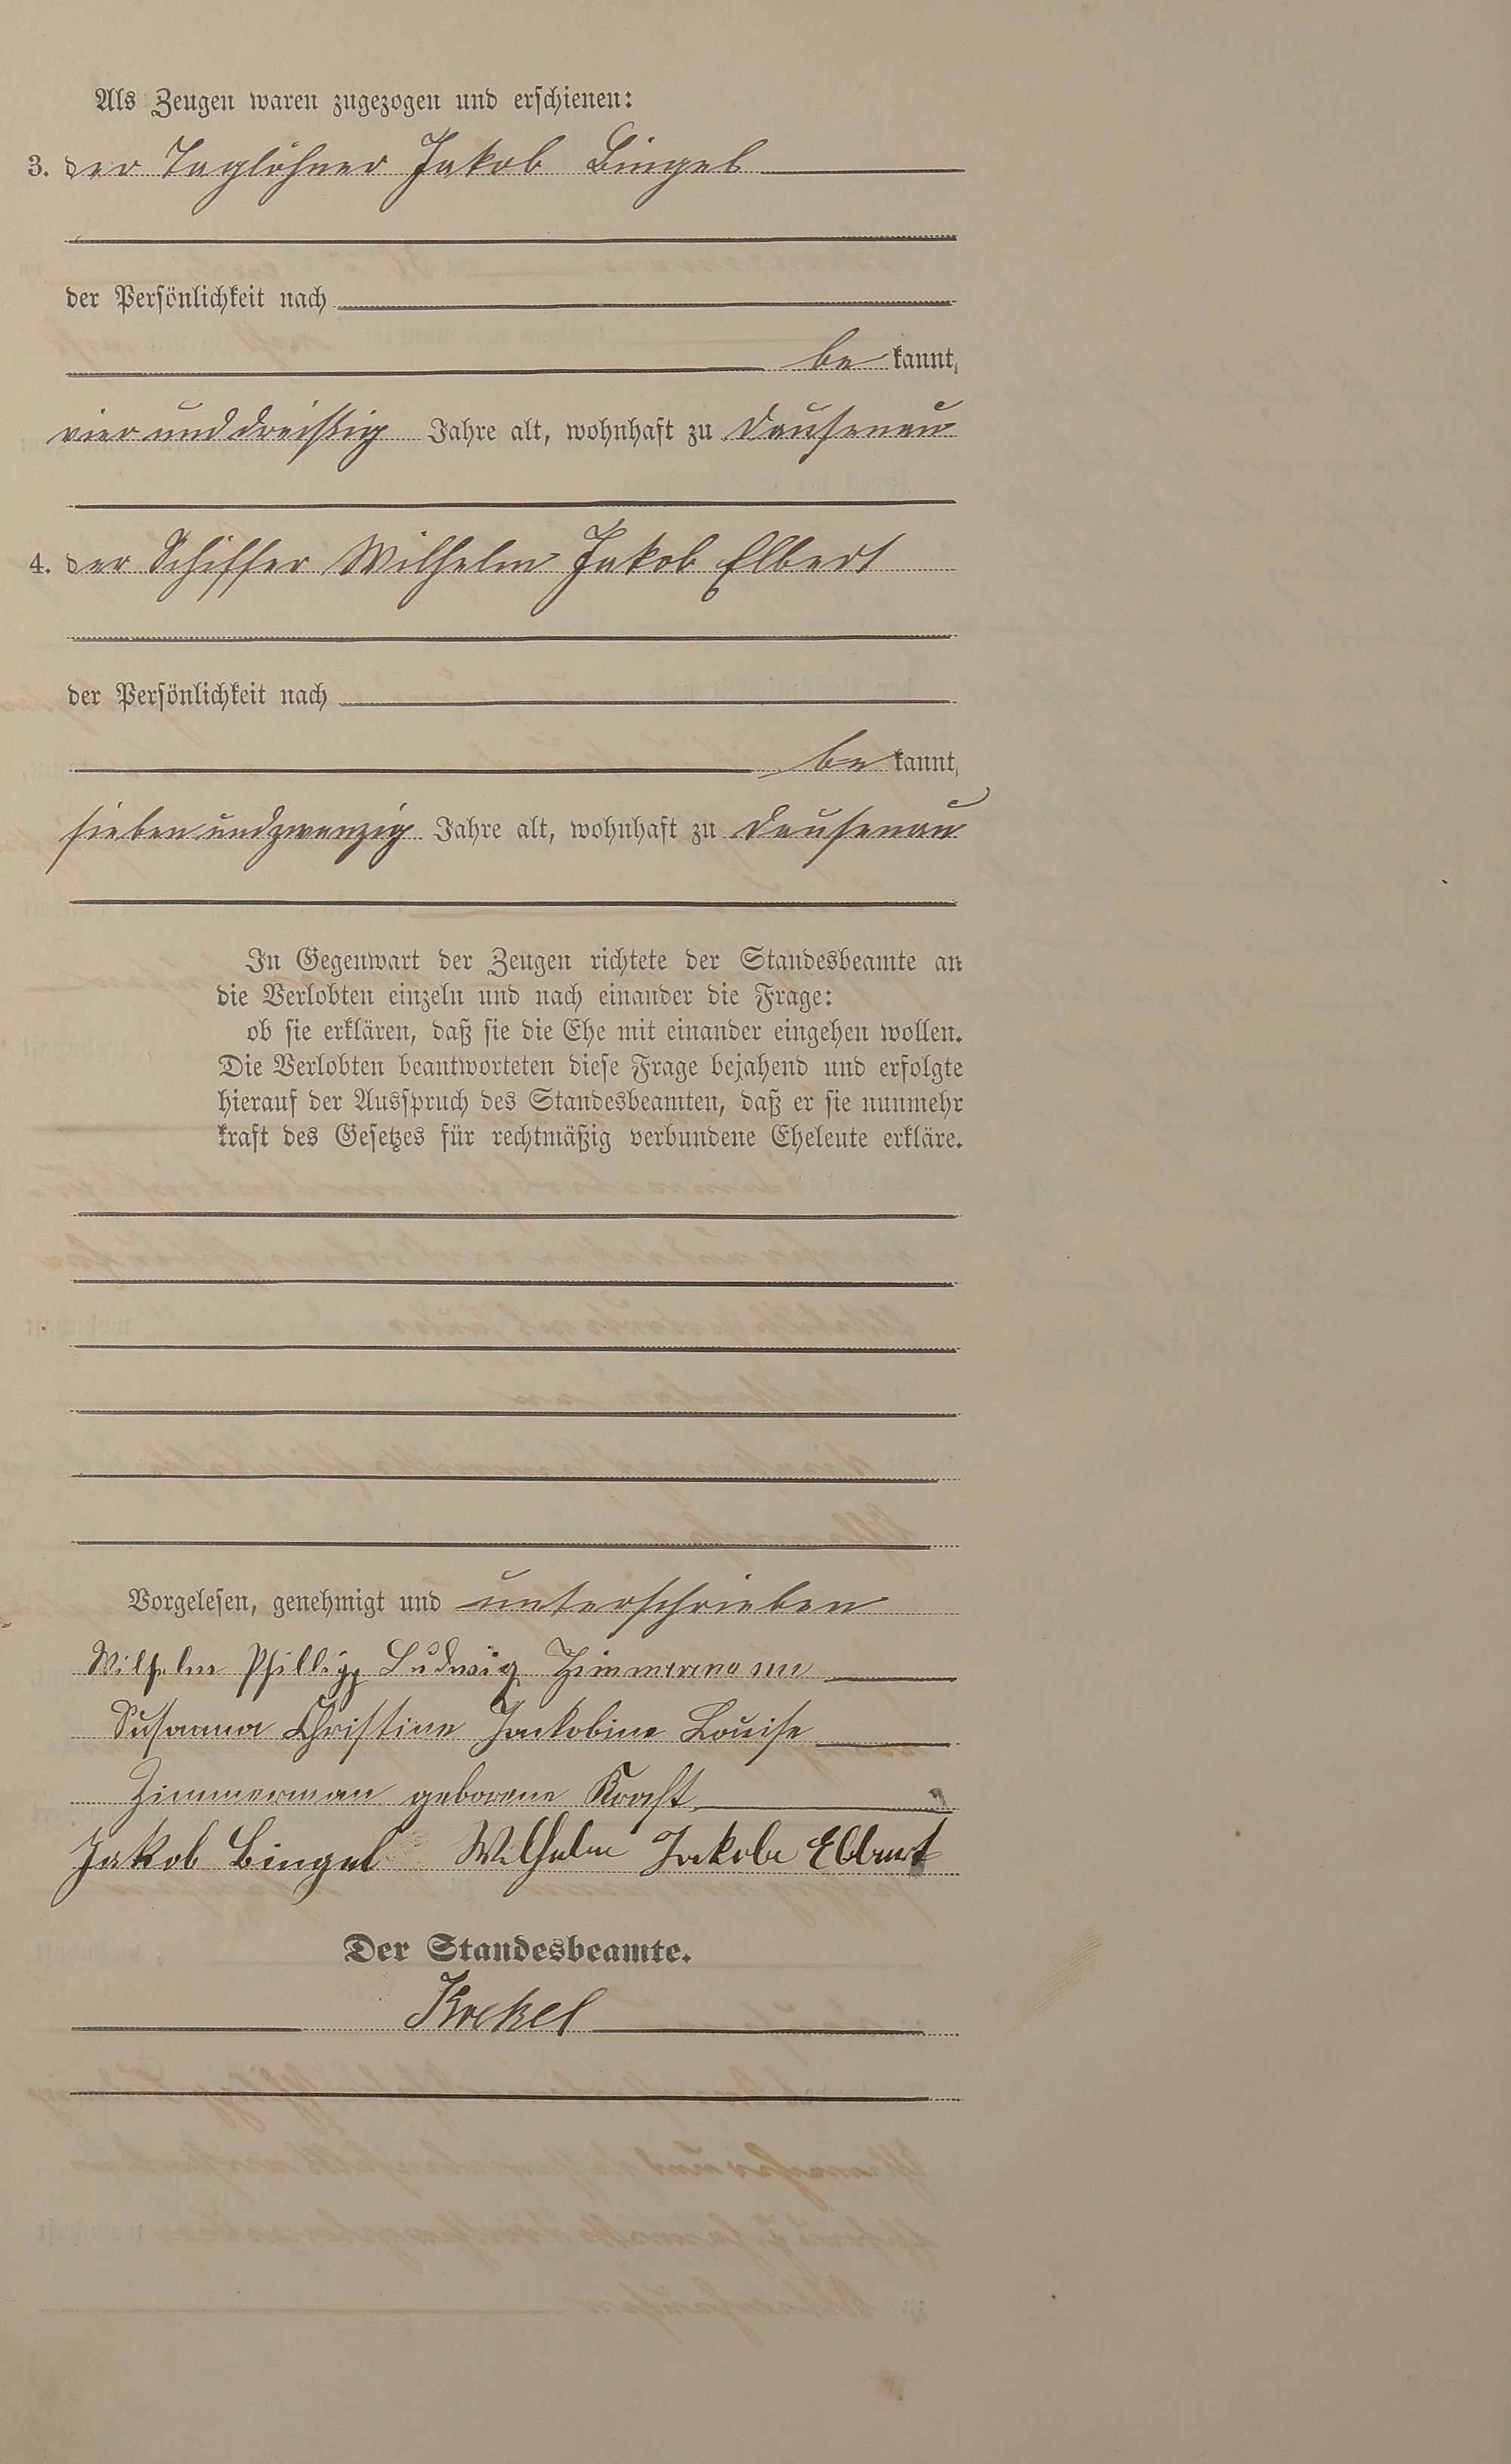 Als Zeugen waren zugezogen und erschienen:
3. der Taglöhner Jakob Bingel
der Persönlichkeit nach
be kannt,
vier und dreißig Jahre alt, wohnhaft zu Dausenau
4. der Schiffer Wilhelm Jakob Elbert
der Persönlichkeit nach
be kannt,
sieben und zwanzig Jahre alt, wohnhaft zu Dausenau
In Gegenwart der Zeugen richtete der Standesbeamte an
die Verlobten einzeln und nach einander die Frage:
ob sie erklären, daß sie die Ehe mit einander eingehen wollen.
Die Verlobten beantworteten diese Frage bejahend und erfolgte
hierauf der Ausspruch des Standesbeamten, daß er sie nunmehr
kraft des Gesetzes für rechtmäßig verbundene Eheleute erkläre.
Vorgelesen, genehmigt und unterschrieben
Wilhelm Phillipp Ludwig Zimmermann
Susanna Christine Jackobine Louise
Zimmerman geborene Kraft
Jakob Bingel Wilhelm Jakob Elbert
Der Standesbeamte.